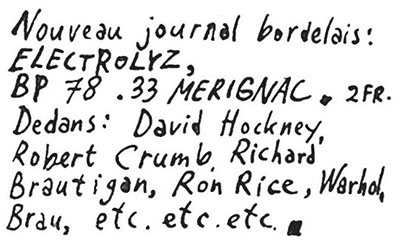 Nouveau journal bordelais:
ELECTROLYZ,
BP 78 .33 MERIGNAC. 2FR.
Dedans: David Hockney,
Robert Crumb, Richard
Brautigan, Ron Rice, Warhol,
Brau, etc. etc. etc.